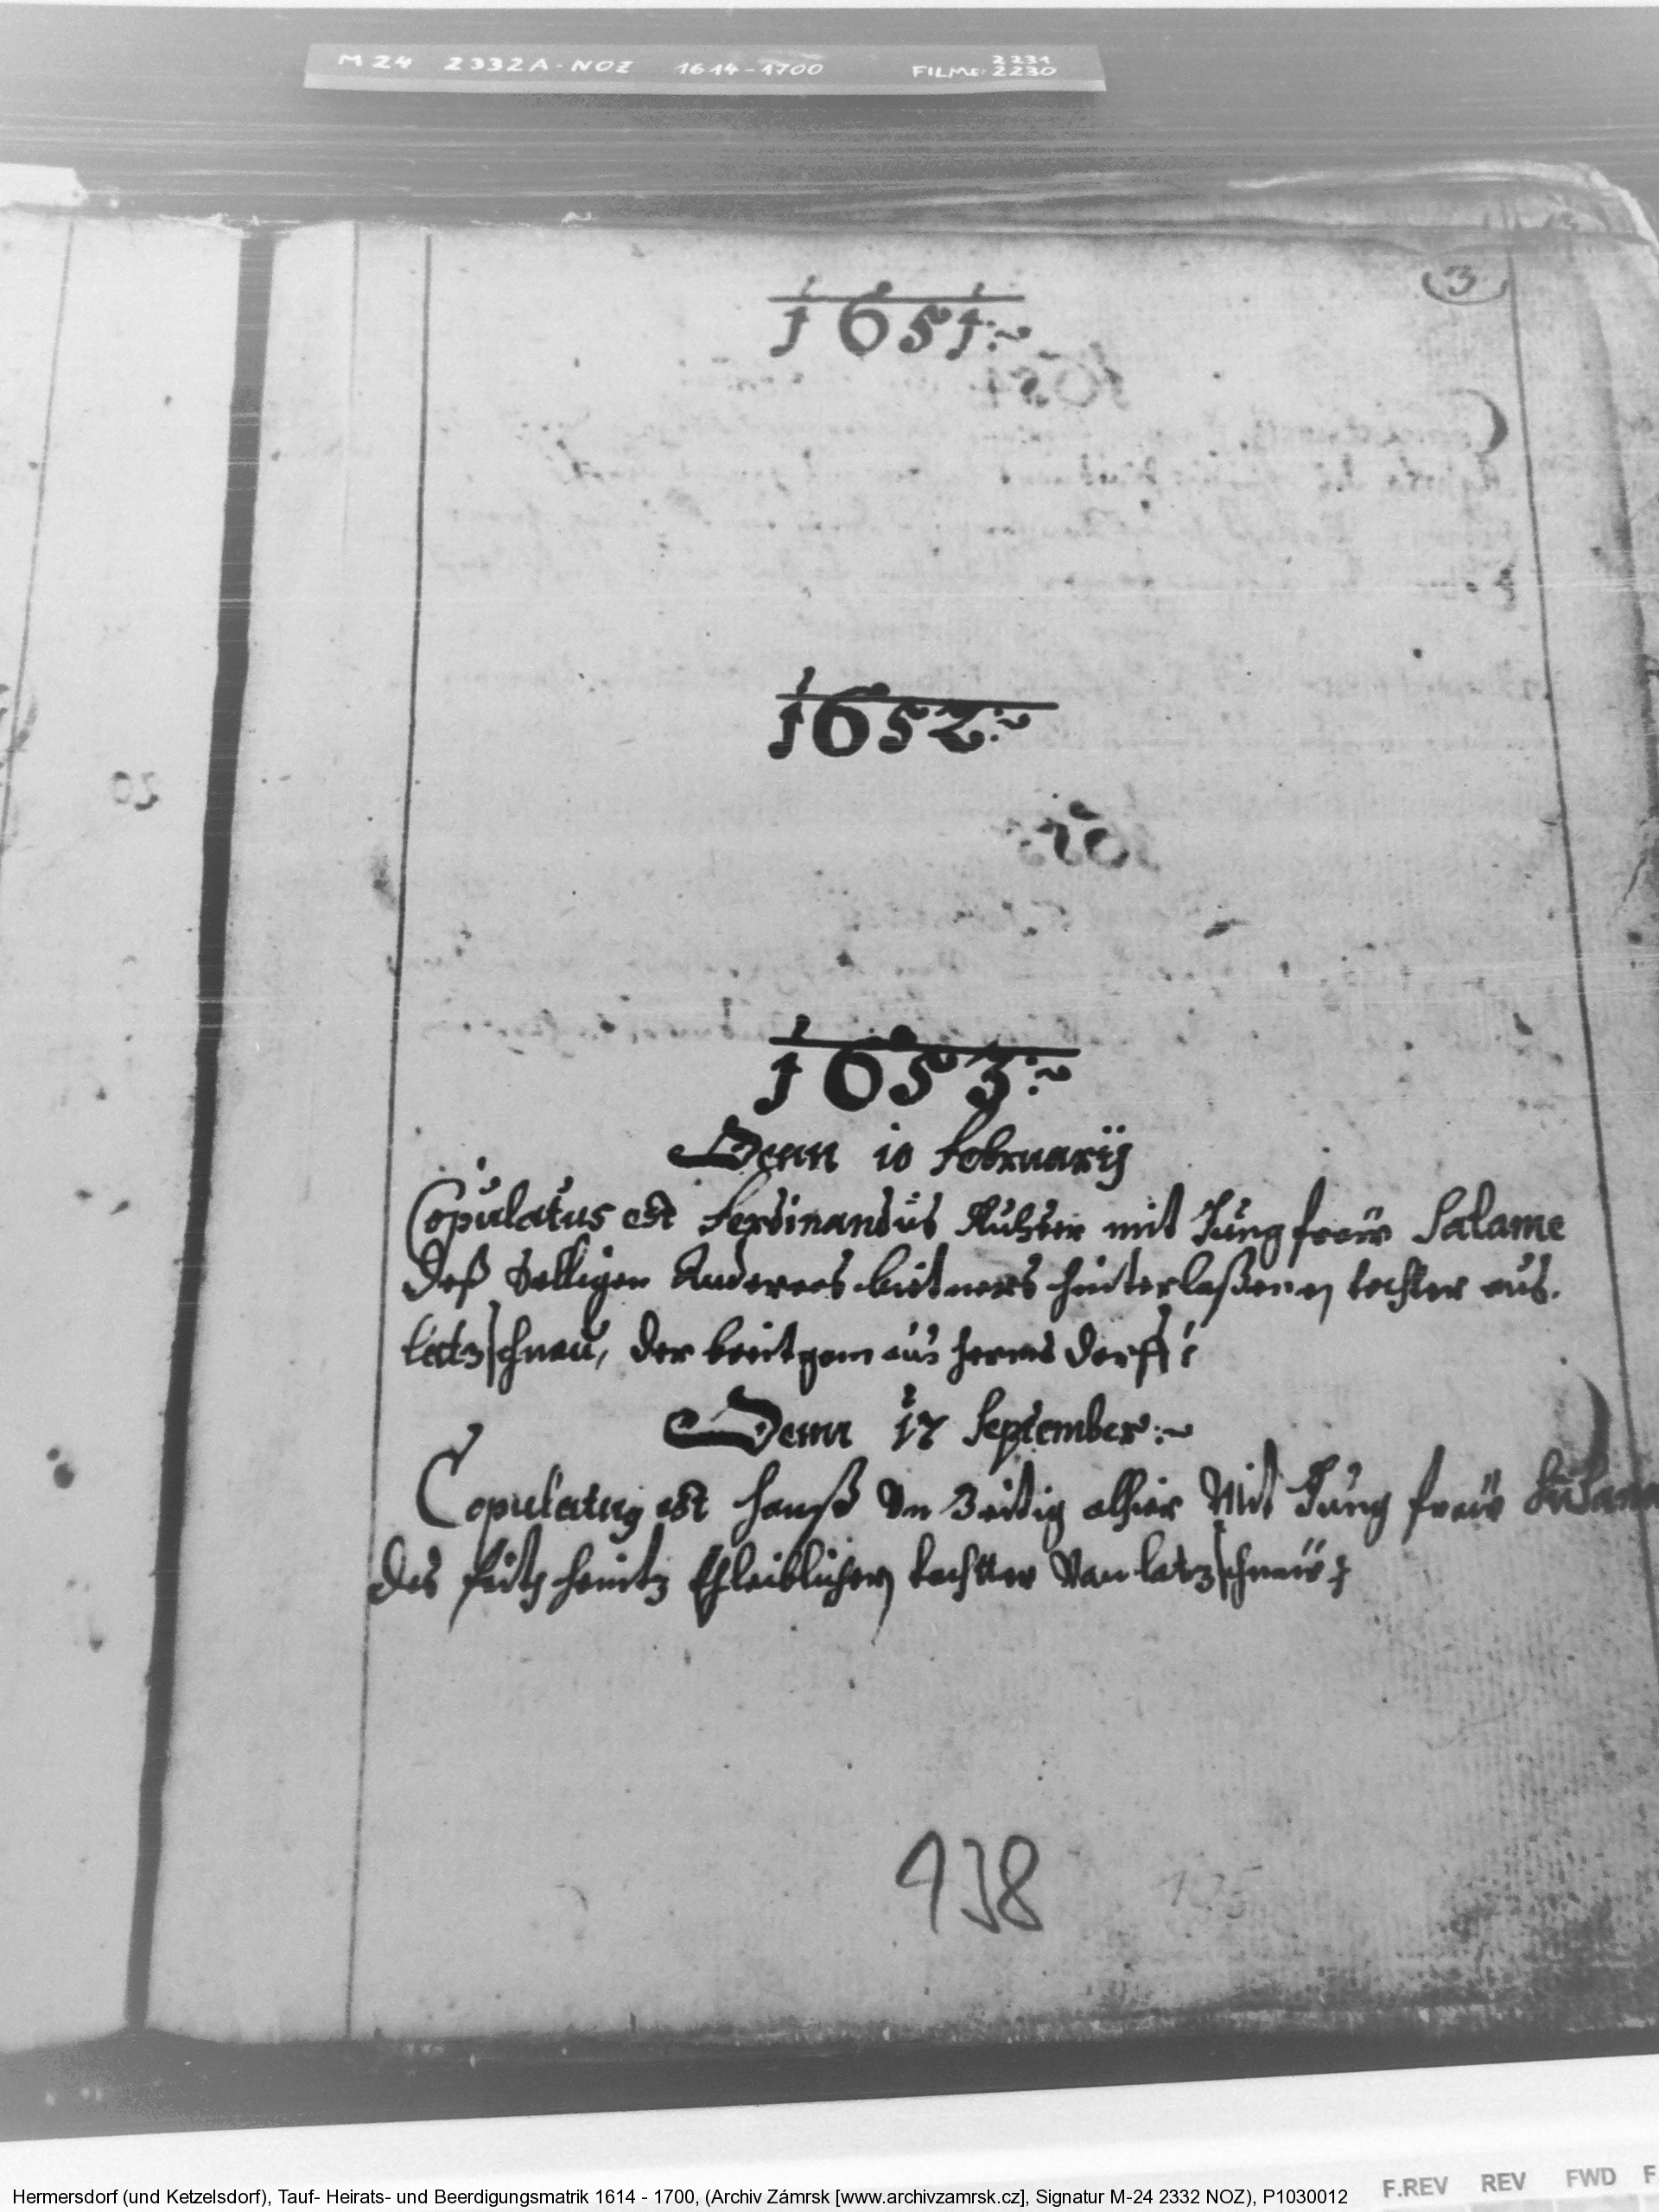 M 24 2332A-NOZ 1614-1700 FILME: 2231 2230
3
1651:~
1652:~
20
1653:~
Denn 10 Februarÿ
Copulatus est Ferdinandus mit Jungfraw Salome
Deß Selligen Anderres bütners hinterlaßenen tochter aus
latzschnau, der breitgam aus hermsdorff
Denn 17 September:~
Copulatus est Hanß alhier Mit Jungfraw Susana
des heintz Ehleiblichen tochtter Von latzschnaw
138
125
Hermersdorf (und Ketzelsdorf), Tauf- Heirats- und Beerdigungsmatrik 1614 - 1700, (Archiv Zámrsk [www.archivzamrsk.cz], Signatur M-24 2332 NOZ), P1030012
F.REV REV FWD F